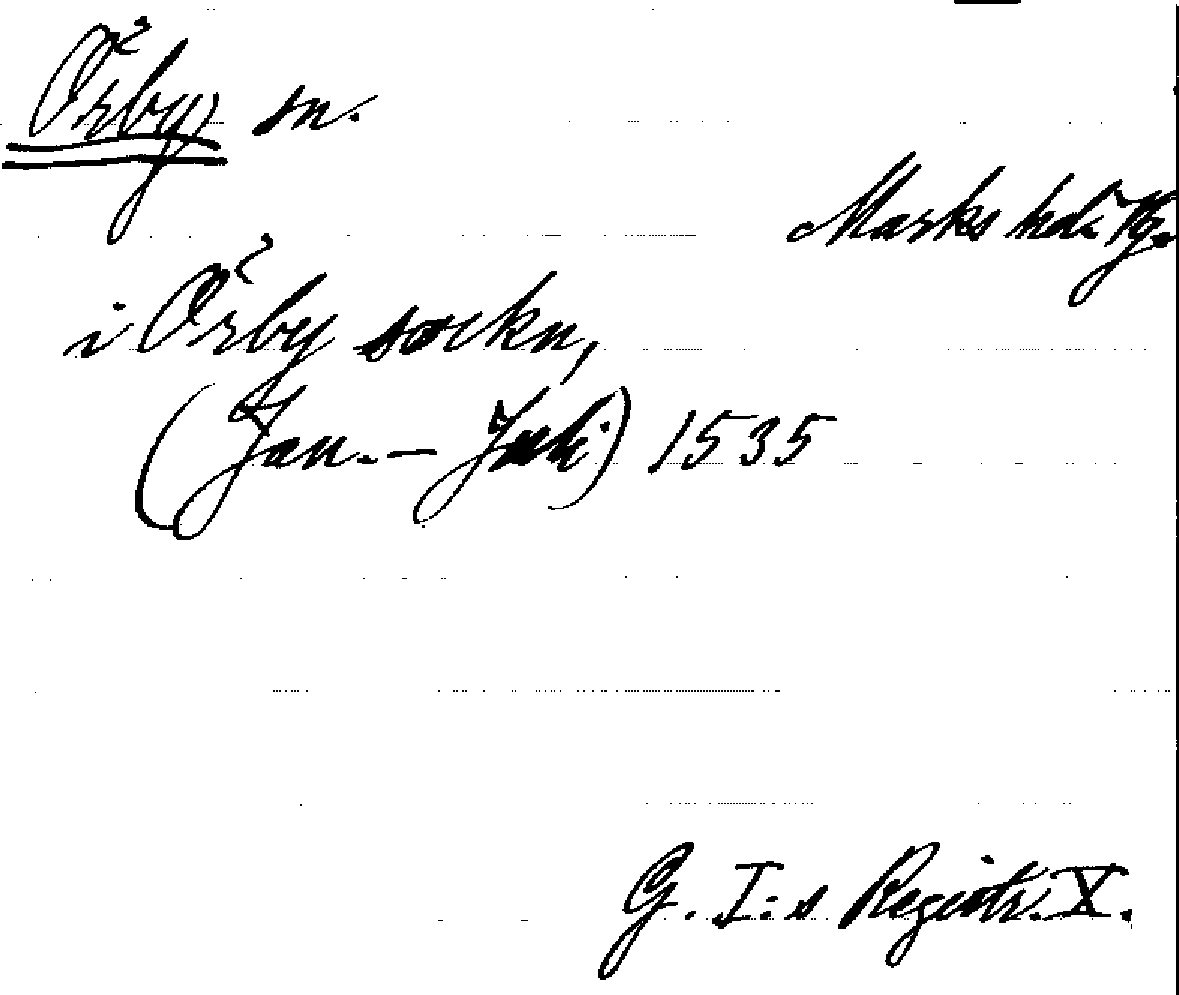 Örby sn.
Marks hd. Vg.
i Örby sockn,
(Jan. – Juli) 1535
G. I:s Registr. X.